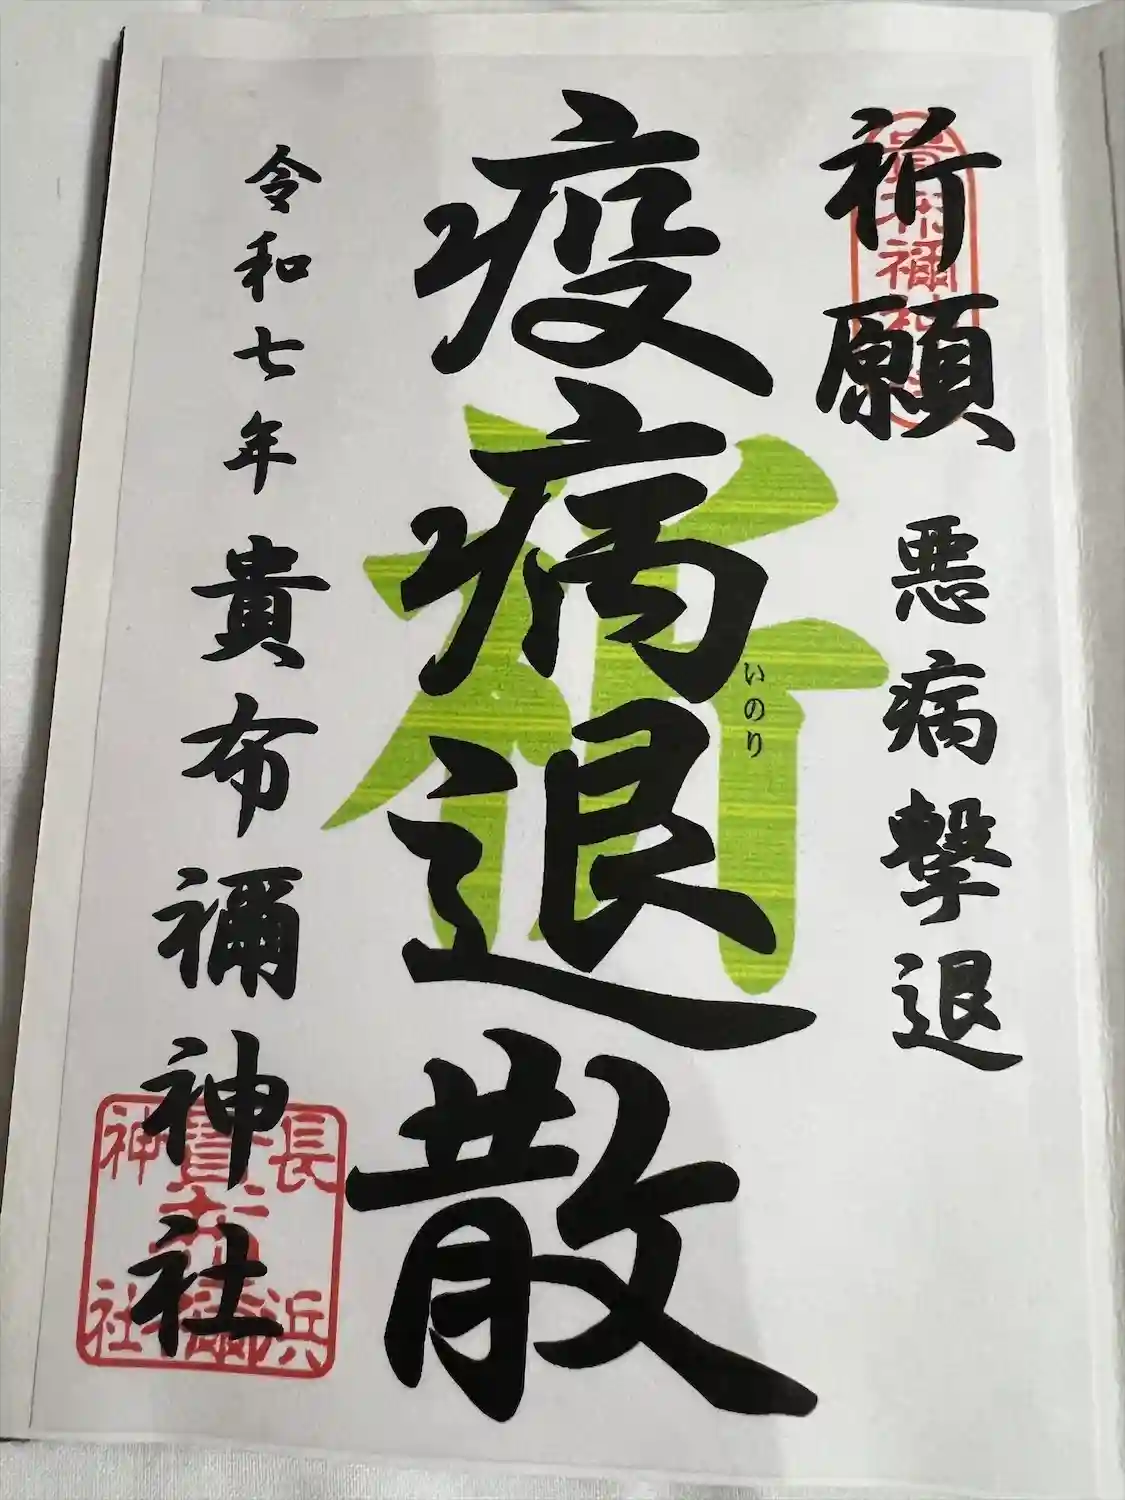 祈願
悪病撃退
貴布禰神社
疫病退散
祈
いのり
令和七年
貴布禰神社
長浜
貴布禰
神社